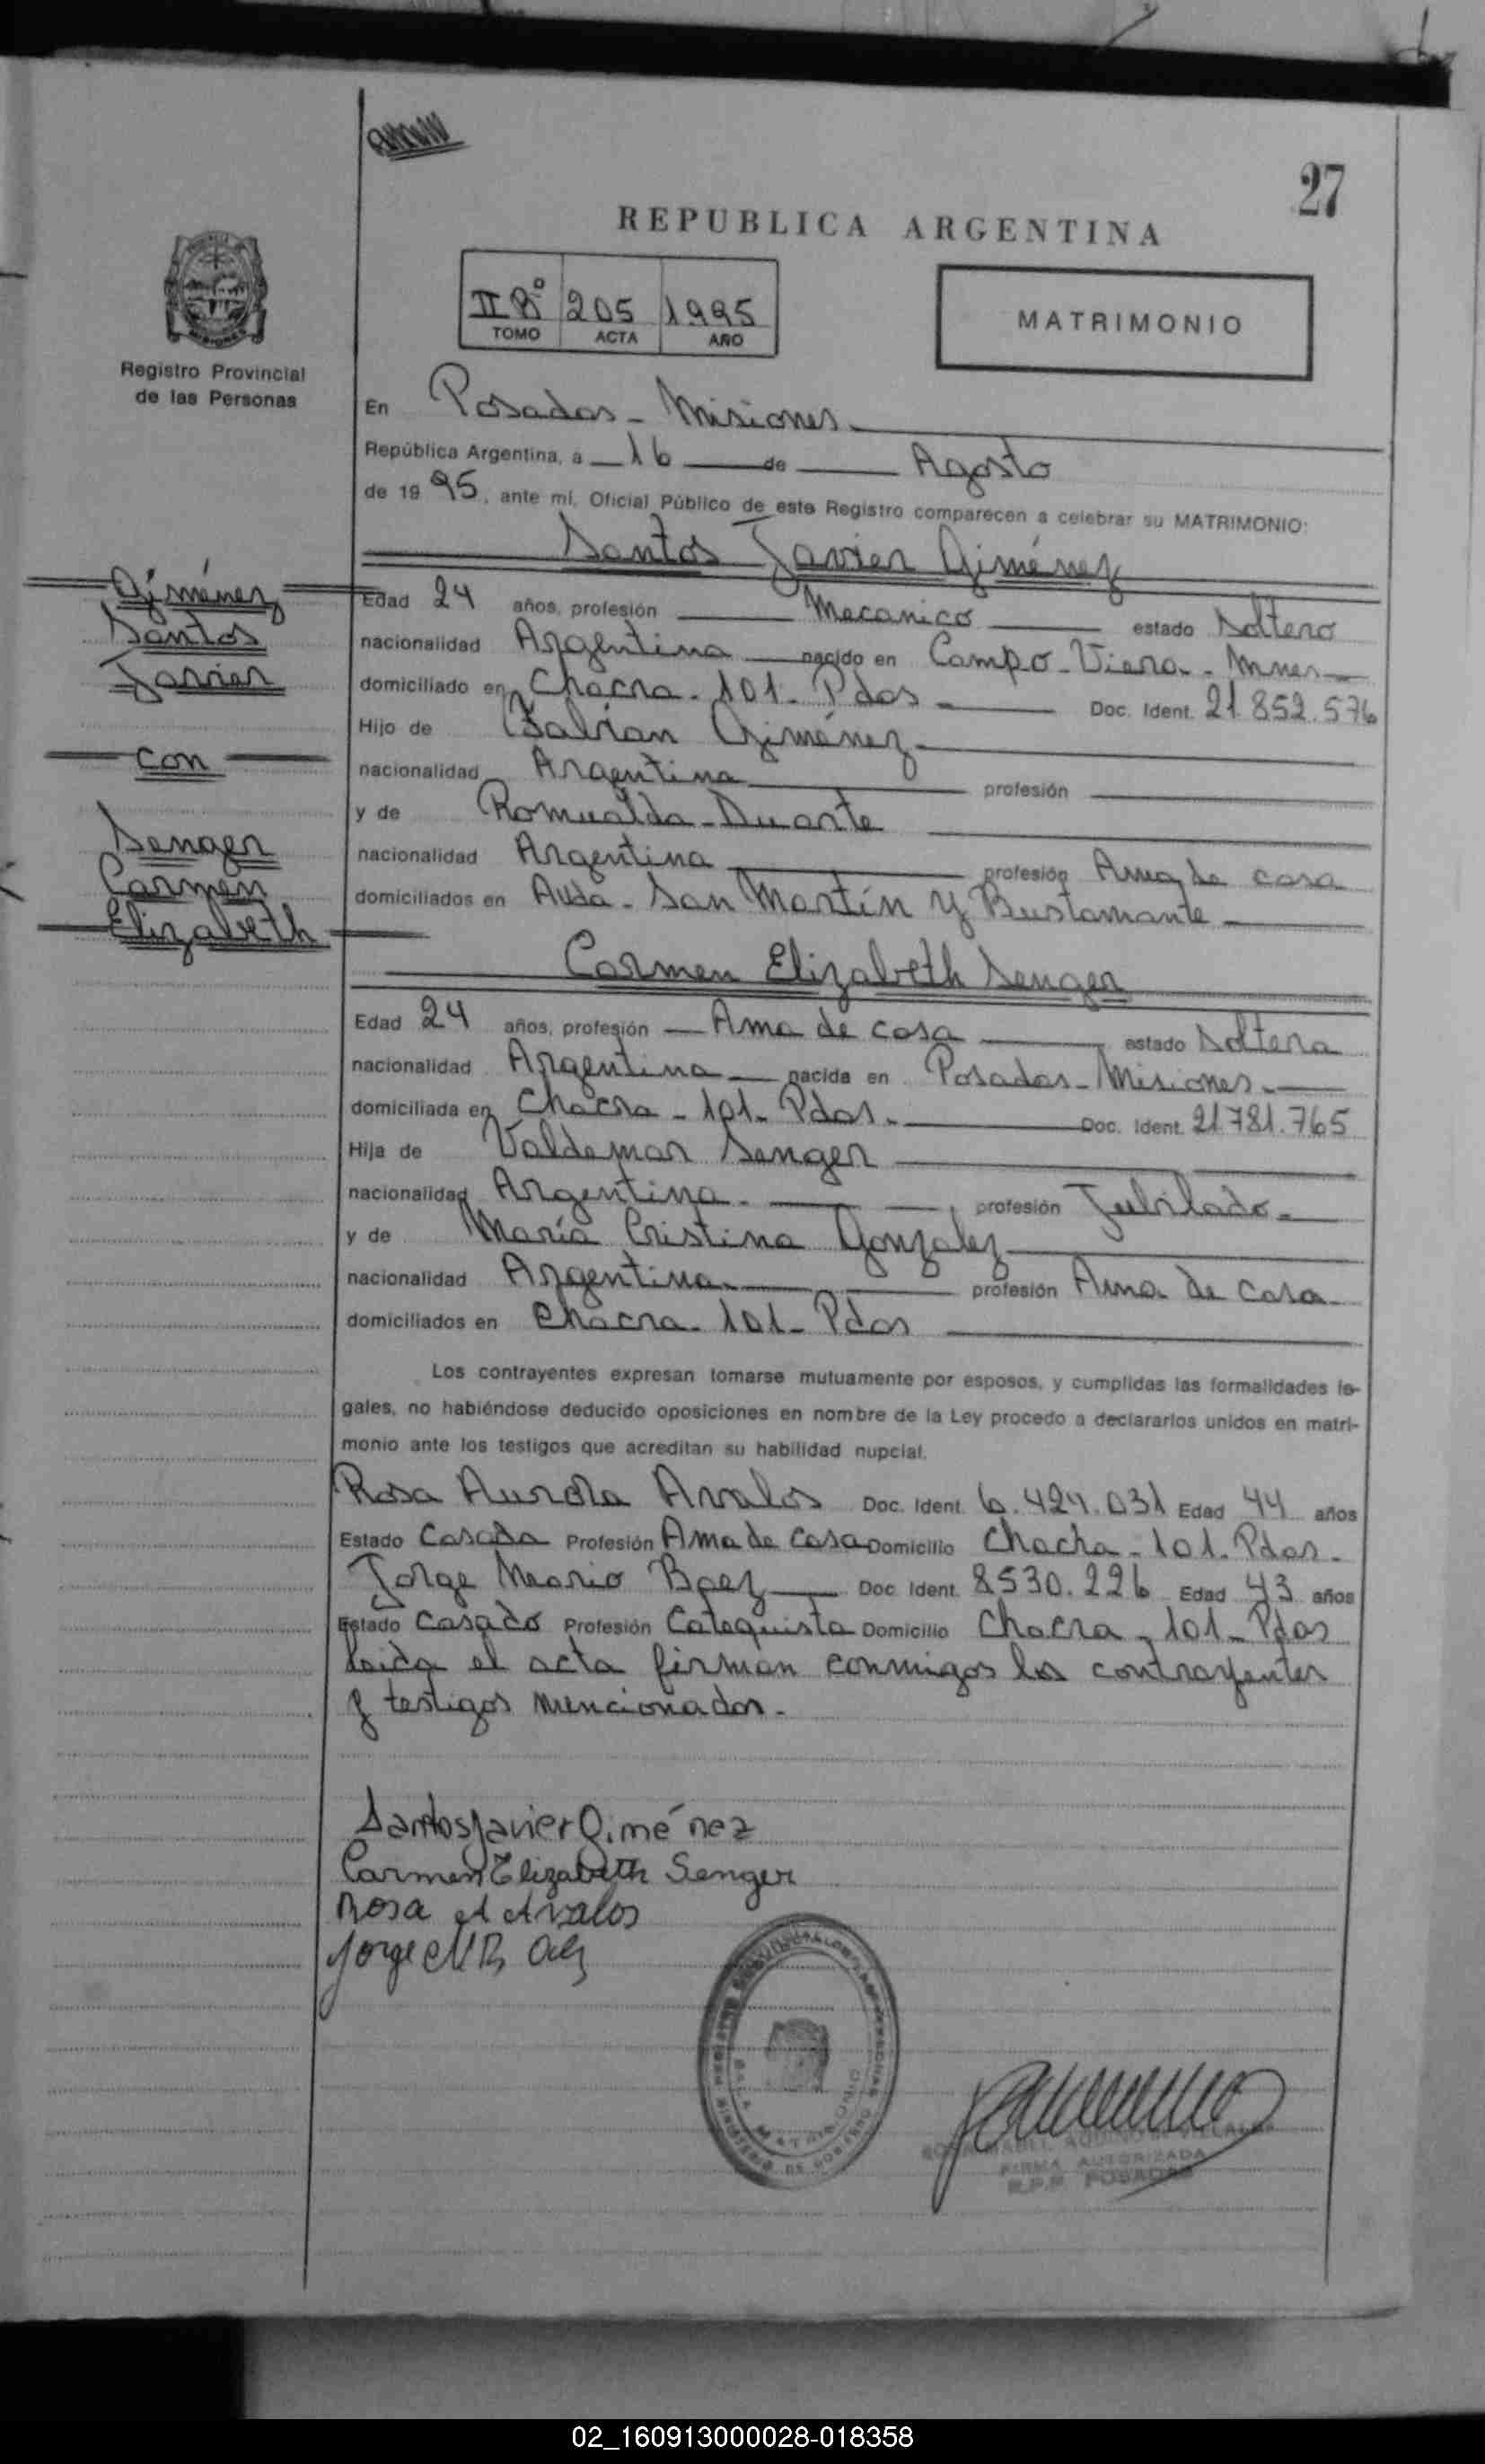 27
REPUBLICA ARGENTINA
II Bº 205 1995
TOMO ACTA AÑO
MATRIMONIO
Registro Provincial
de las Personas
En Posadas - Misiones
República Argentina, a 16 de Agosto
de 1995, ante mí, Oficial Público de este Registro comparecen a celebrar su MATRIMONIO:
Santos Javier Giménez
Giménez
Santos
Javier
con
Senger
Carmen
Elizabeth
Edad 24 años, profesión Mecanico estado Soltero
nacionalidad Argentina nacido en Campo - Viera - Mnes
domiciliado en Chacra - 101 - Pdas Doc. Ident. 21.852.576
Hijo de Giménez
nacionalidad Argentina profesión
y de Romualda - Duarte
nacionalidad Argentina profesión Ama de casa
domiciliados en Avda - San Martín y Bustamante
Carmen Elizabeth Senger
Edad 24 años, profesión Ama de casa estado Soltera
nacionalidad Argentina nacida en Posadas - Misiones -
domiciliada en Chacra - 101 - Pdas - Doc. Ident. 21.781.765
Hija de Valdemar Senger
nacionalidad Argentina - profesión Jubilado -
y de María Cristina Gonzalez
nacionalidad Argentina profesión Ama de casa
domiciliados en Chacra - 101 - Pdas
Los contrayentes expresan tomarse mutuamente por esposos, y cumplidas las formalidades le-
gales, no habiéndose deducido oposiciones en nombre de la Ley procedo a declararlos unidos en matri-
monio ante los testigos que acreditan su habilidad nupcial.
Rosa Aurora Avalos Doc. Ident. 6.424.031 Edad 44 años
Estado Casada Profesión Ama de Casa Domicilio Chacra - 101 - Pdas -
Jorge Mario Baez Doc. Ident. 8530.226 Edad 43 años
Estado Casado Profesión Catequista Domicilio Chacra - 101 - Pdas
Leida el acta firman conmigos los contrayentes
y testigos mencionados -
Santos Javier Giménez
Carmen Elizabeth Senger
Rosa A Avalos
Jorge M Baez
MINISTERIO DE GOBIERNO
SALA MATRIMONIO
FIRMA AUTORIZADA
R.P.P. POSADAS
02_160913000028-018358